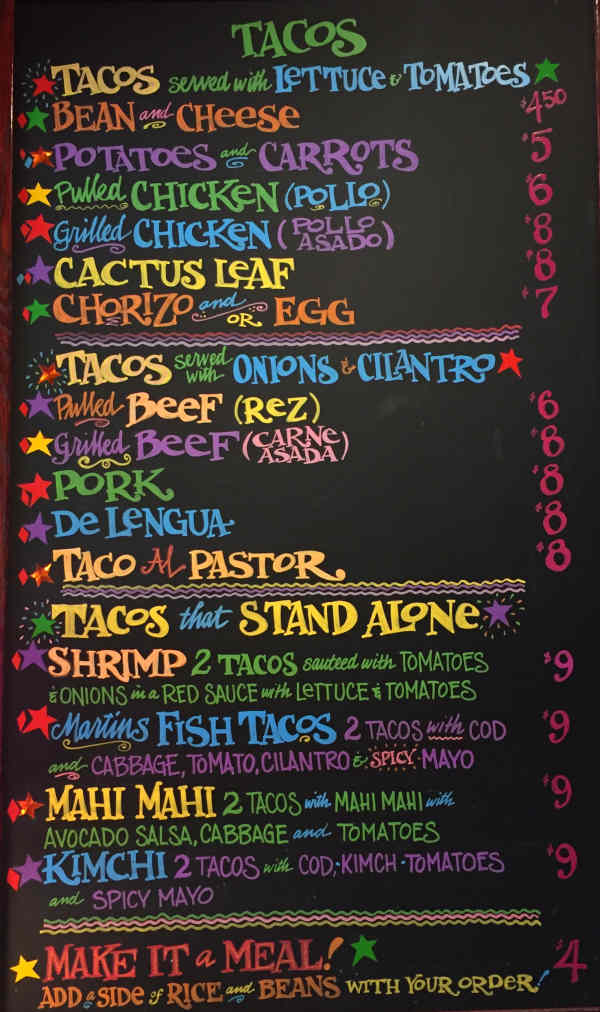 TACOS
TACOS served with LETTUCE & TOMATOES
BEAN and CHEESE $4.50
POTATOES and CARROTS $5
Pulled CHICKEN (POLLO) $6
Grilled CHICKEN (POLLO ASADO) $8
CACTUS LEAF $8
CHORIZO and OR EGG $7
TACOS served with ONIONS & CILANTRO
Pulled BEEF (REZ) $6
Grilled BEEF (CARNE ASADA) $8
PORK $8
DE LENGUA $8
TACO AL PASTOR $8
TACOS that STAND ALONE
SHRIMP 2 TACOS sauteed with TOMATOES $9
& ONIONS in a RED SAUCE with LETTUCE & TOMATOES
Martins FISH TACOS 2 TACOS with COD $9
and CABBAGE, TOMATO, CILANTRO & SPICY MAYO
MAHI MAHI 2 TACOS with MAHI MAHI with $9
AVOCADO SALSA, CABBAGE and TOMATOES
KIMCHI 2 TACOS with COD, KIMCH TOMATOES $9
and SPICY MAYO
MAKE IT a MEAL! $4
ADD a SIDE of RICE and BEANS WITH YOUR ORDER!